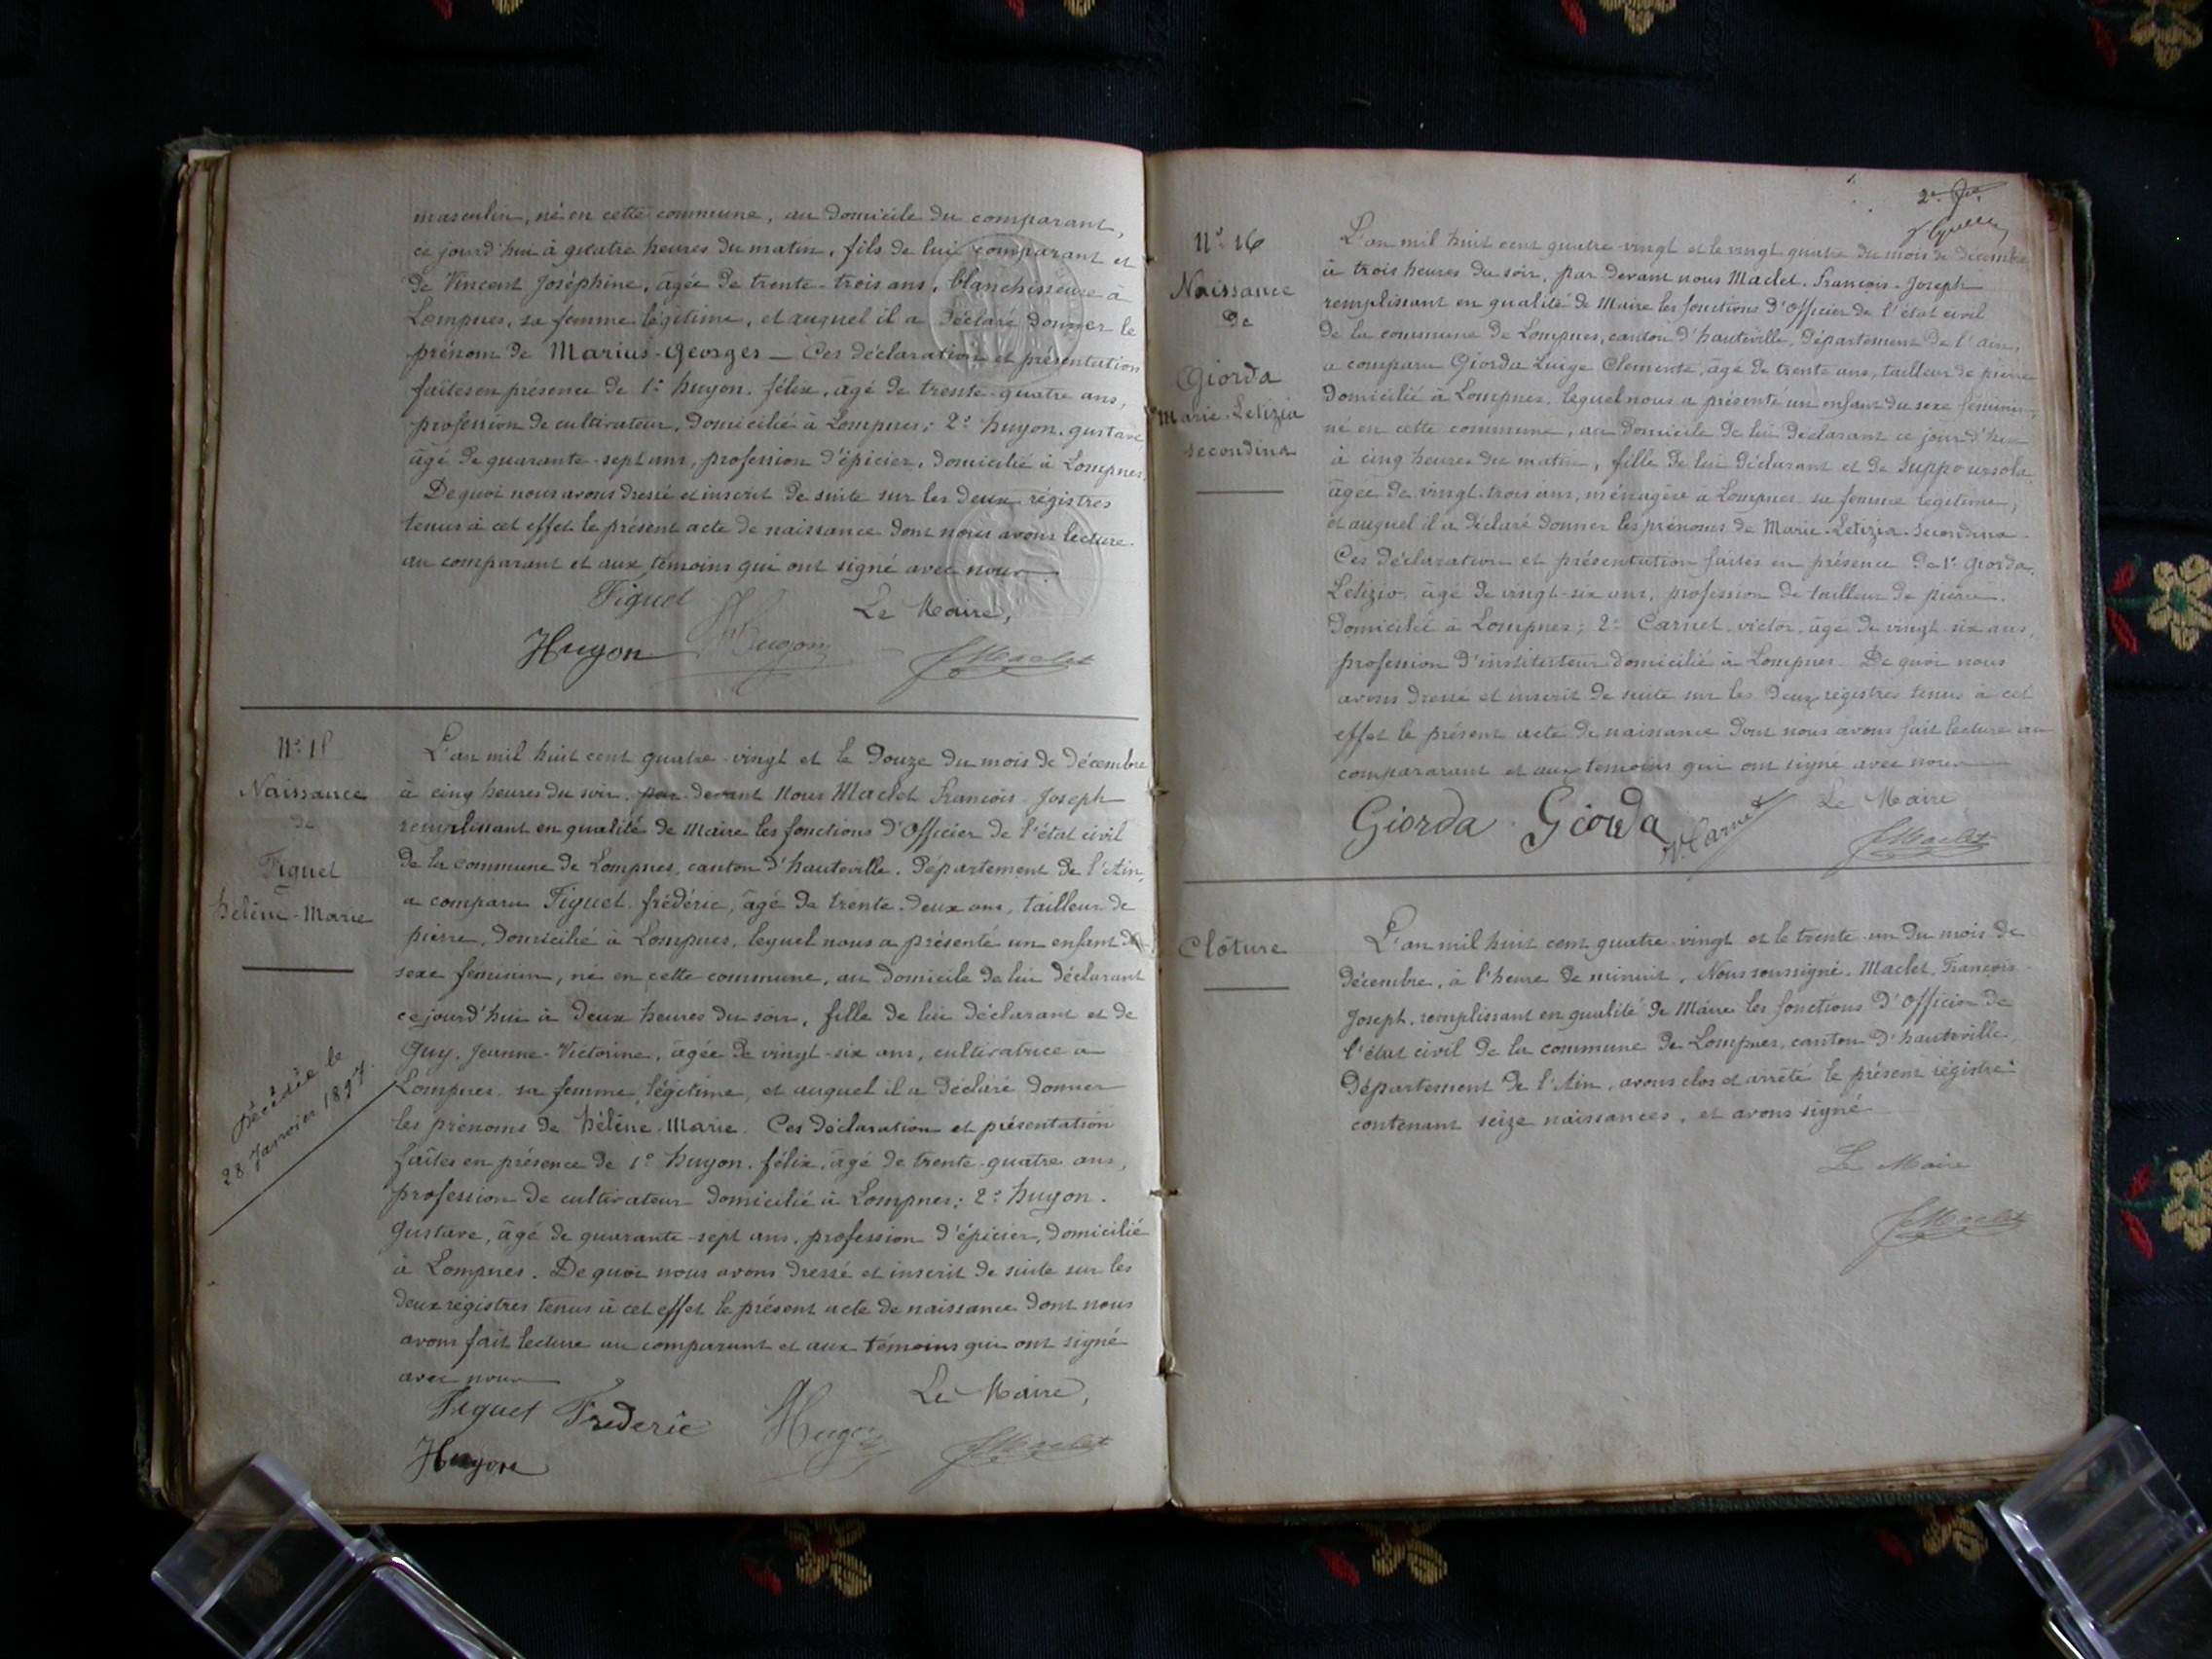 masculin, né en cette commune, au domicile du comparant,
ce jourd'hui à quatre heures du matin, fils de lui comparant et
de Vincent Joséphine, âgée de trente-trois ans, blanchisseuse à
Lompnes, sa femme légitime, et auquel il a déclaré donner le
prénom de Marius-Georges — Ces déclaration et présentation
faites en présence de 1° huyon, félix, âgé de trente-quatre ans,
profession de cultivateur, domicilié à Lompnes; 2° huyon, gustave
âgé de quarante-sept ans, profession d'épicier, domicilié à Lompnes.
De quoi nous avons dressé et inscrit de suite sur les deux régistres
tenus à cet effet le présent acte de naissance dont nous avons lecture
au comparant et aux témoins qui ont signé avec nous
Figuet Le Maire,
Huyon Huyon JMaclet
N° 15
Naissance
de
Figuet
hélène-Marie
Décédée le
28 Janvier 1897.
L'an mil huit cent quatre-vingt et le douze du mois de décembre
à cinq heures du soir, par devant Nous Maclet François-Joseph
remplissant en qualité de Maire les fonctions d'Officier de l'état civil
de la commune de Lompnes, canton d'hauteville, Département de l'Ain,
a comparu Figuet, frédéric, âgé de trente-deux ans, tailleur de
pierre, domicilié à Lompnes, lequel nous a présenté un enfant du
sexe féminin, né en cette commune, au domicile de lui déclarant
cejourd'hui à deux heures du soir, fille de lui déclarant et de
Guy, Jeanne-Victorine, âgée de vingt-six ans, cultivatrice à
Lompnes sa femme légitime, et auquel il a déclaré donner
les prénoms de hélène-Marie. Ces déclaration et présentation
faites en présence de 1° huyon, félix, âgé de trente-quatre ans,
profession de cultivateur domicilié à Lompnes; 2° huyon.
Gustave, âgé de quarante-sept ans, profession d'épicier, domicilié
à Lompnes. De quoi nous avons dressé et inscrit de suite sur les
deux régistres tenus à cet effet le présent acte de naissance dont nous
avons fait lecture au comparant et aux témoins qui ont signé
avec nous
Figuet Frederic Huyon Le Maire,
Huyon JMaclet
N° 16
Naissance
de
Giorda
Marie-Letizia
secondina
L'an mil huit cent quatre-vingt et le vingt quatre du mois de décembre
à trois heures du soir, par devant nous Maclet, François-Joseph
remplissant en qualité de Maire les fonctions d'Officier de l'état civil
de la commune de Lompnes, canton d'hauteville, département de l'ain,
a comparu Giorda Luige Clemente, âgé de trente ans, tailleur de pierre
domicilié à Lompnes, lequel nous a présenté un enfant du sexe féminin,
né en cette commune, au domicile de lui déclarant ce jour d'hui
à cinq heures du matin, fille de lui déclarant et de Suppo ursola
âgée de vingt-trois ans, ménagère à Lompnes sa femme légitime,
et auquel il a déclaré donner les prénoms de Marie-Letizia-secondina
Ces déclaration et présentation faites en présence de 1° giorda,
Letizio, âgé de vingt-six ans, profession de tailleur de pierre,
domicilié à Lompnes; 2° Carnet victor, âgé de vingt six ans,
profession d'instituteur domicilié à Lompnes De quoi nous
avons dressé et inscrit de suite sur les deux régistres tenus à cet
effet le présent acte de naissance dont nous avons fait lecture au
compararant et aux témoins qui ont signé avec nous
Giorda Giorda V. Carnet Le Maire
JMaclet
Clôture
L'an mil huit cent quatre-vingt et le trente-un du mois de
décembre, à l'heure de minuit, Nous soussigné, Maclet, François
Joseph, remplissant en qualité de Maire les fonctions d'Officier de
l'état civil de la commune de Lompnes, canton d'hauteville,
département de l'Ain, avons clos et arrêté le présent régistre
contenant seize naissances, et avons signé
Le Maire
JMaclet